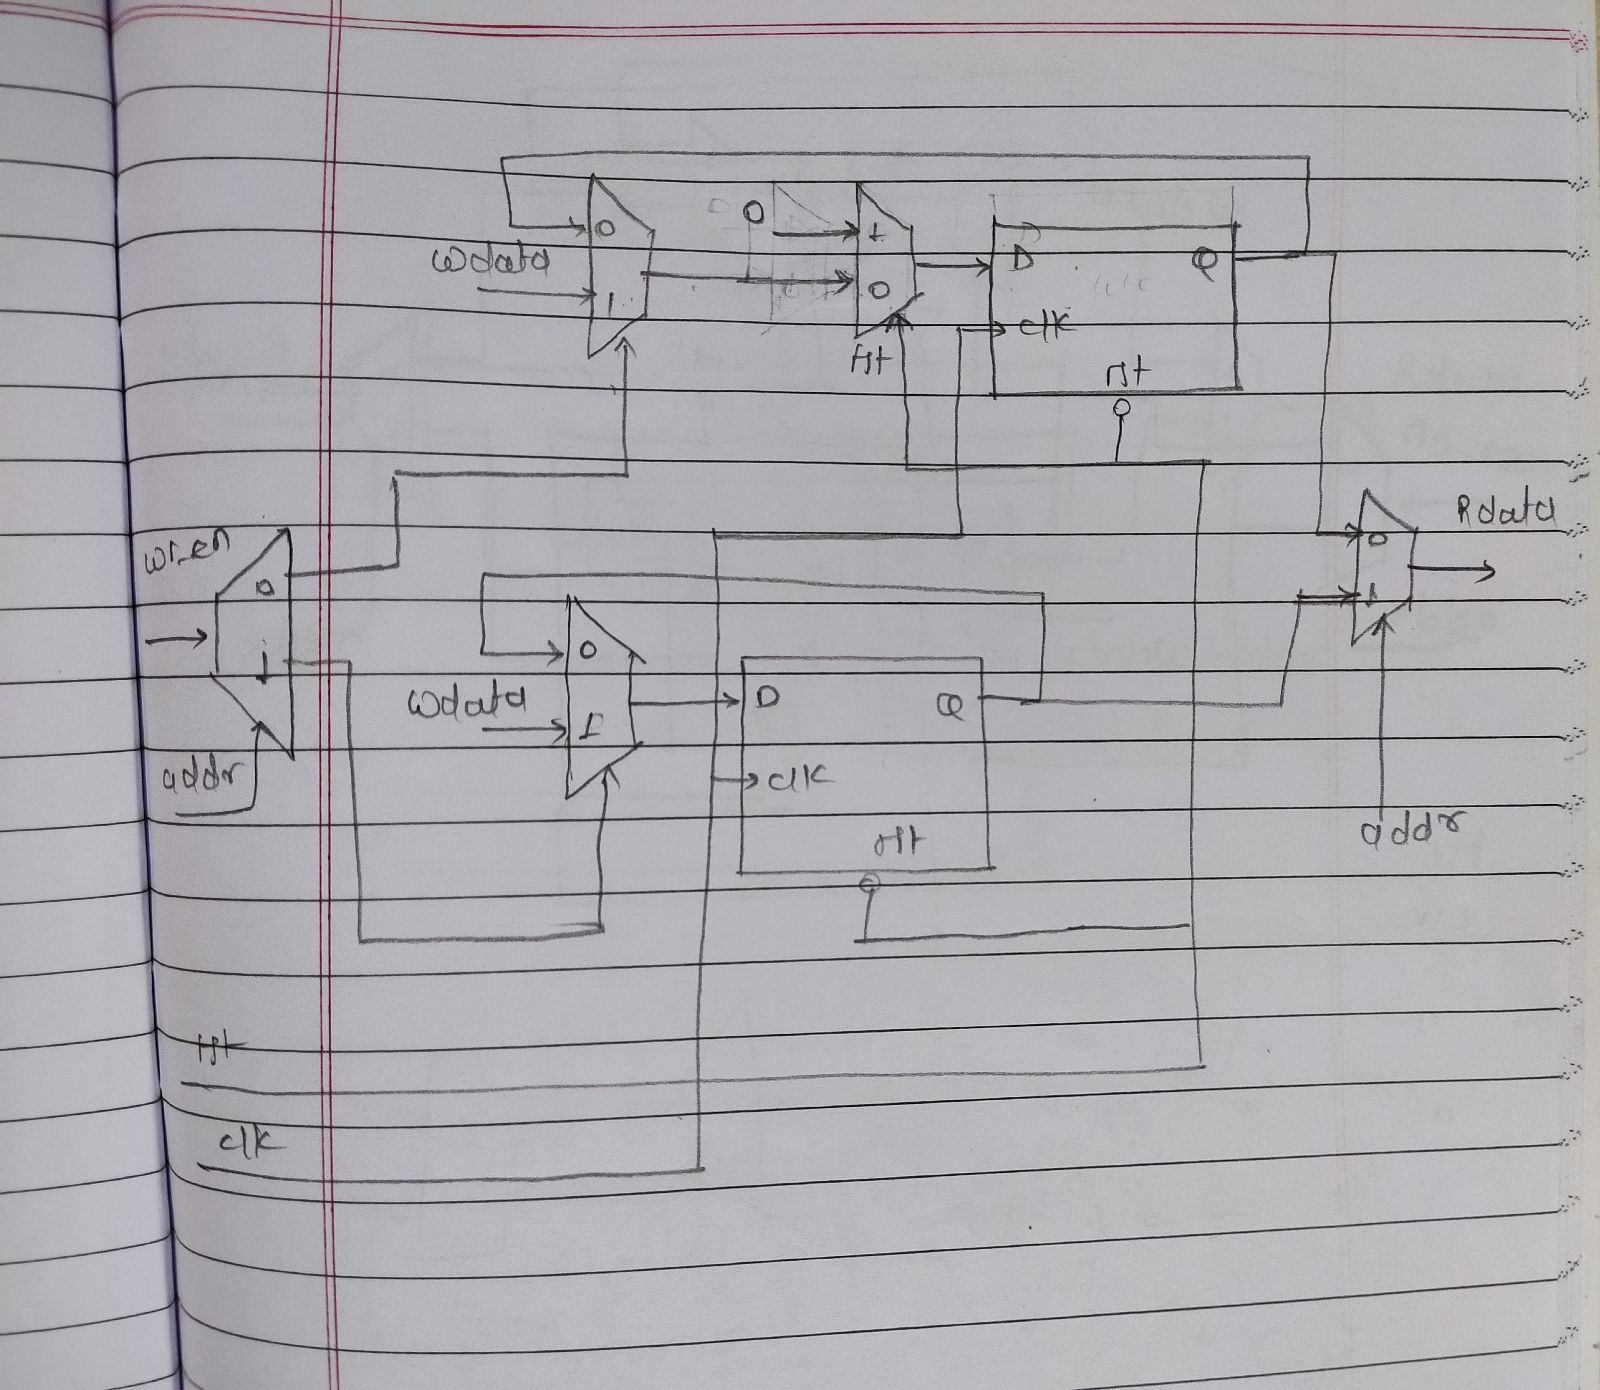 0
0 1
wdata D Q
1 0
clk
rst rst
Rdata
wr_en 0
0
1
0
1
wdata D Q
1
addr clk
addr
rst
rst
clk